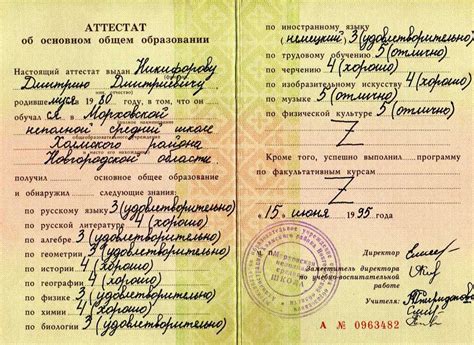 АТТЕСТАТ
об основном общем образовании
Настоящий аттестат выдан Никифорову
Дмитрию Дмитриевичу
родившемуся 1980 году, в том, что он
обучался в Морховской
неполной средней школе
Холмского района
Новгородской области
получил основное общее образование
и обнаружил следующие знания:
по русскому языку 3 (удовлетворительно)
по русской литературе 4 (хорошо)
по алгебре 3 (удовлетворительно)
по геометрии 3 (удовлетворительно)
по истории 4 (хорошо)
по географии 4 (хорошо)
по физике 3 (удовлетворительно)
по химии 4 (хорошо)
по биологии 3 (удовлетворительно)
по иностранному языку
(немецкий) 3 (удовлетворительно)
по трудовому обучению 5 (отлично)
по черчению 4 (хорошо)
по изобразительному искусству 4 (хорошо)
по музыке 5 (отлично)
по физической культуре 5 (отлично)
Z
Кроме того, успешно выполнил программу
по факультативным курсам
Z
« 15 » июня 1995 года
Директор
Заместитель директора
по учебно-воспитательной
работе
Учителя:
ШКОЛА
А № 0963482